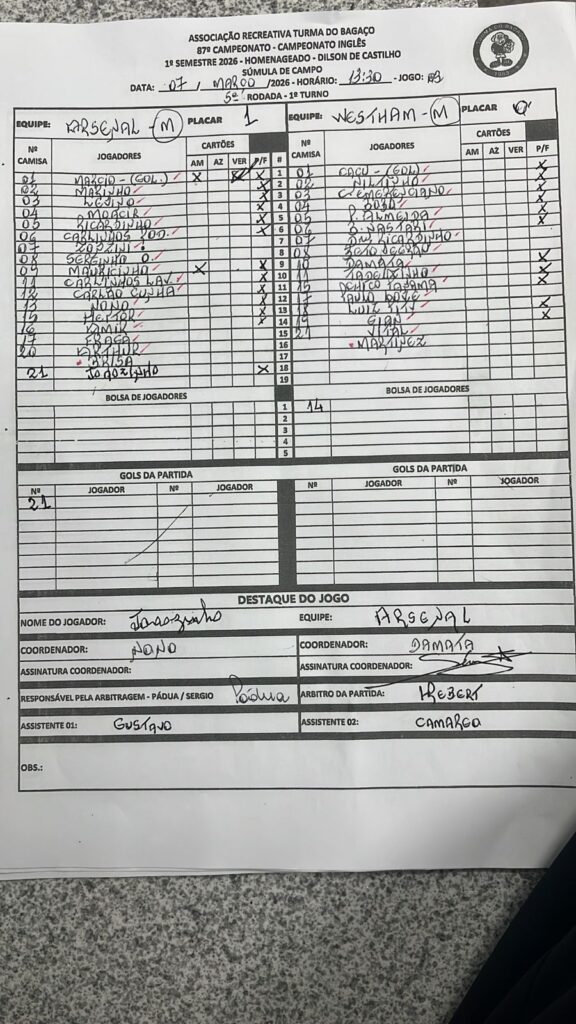 ASSOCIAÇÃO RECREATIVA TURMA DO BAGAÇO
87º CAMPEONATO - CAMPEONATO INGLÊS
1º SEMESTRE 2026 - HOMENAGEADO - DILSON DE CASTILHO
SÚMULA DE CAMPO
DATA: 07 / MARÇO /2026 - HORÁRIO: 13:30 - JOGO: 03
5ª RODADA - 1º TURNO
EQUIPE: ARSENAL - M PLACAR 1 EQUIPE: WESTHAM - M PLACAR 0
Nº CAMISA JOGADORES CARTÕES AM AZ VER P/F # Nº CAMISA JOGADORES CARTÕES AM AZ VER P/F
01 MARCIO - (GOL) X X 1 01 CACU - (GOL) X
02 MARINHO X 2 02 NILTINHO X
03 X 3 03 CLEMERENCIANO X
04 MOACIR X 4 04 X
05 RICARDINHO X 5 05 P. ALMEIDA X
06 CARLINHOS ROD. X 6 06 D. NASTARI
07 7 07 RICARDINHO
08 SERGINHO O. 8 08
09 MAURICINHO X X 9 10 DAMATA X
11 CARLINHOS LAV. X 10 11 X
12 CARLÃO CUNHA X 11 15
13 NONO X 12 17 PAULO
15 HEITOR X 13 18 LUIZ X
16 X 14 19 GIAN X
17 FRAGA 15 21 VITAL
20 ARTHUR 16 MARTINEZ
17
21 JOAOZINHO X 18
19
BOLSA DE JOGADORES BOLSA DE JOGADORES
1 14
2
3
4
5
GOLS DA PARTIDA GOLS DA PARTIDA
Nº JOGADOR Nº JOGADOR Nº JOGADOR Nº JOGADOR
21
DESTAQUE DO JOGO
NOME DO JOGADOR: Joaozinho EQUIPE: ARSENAL
COORDENADOR: NONO COORDENADOR: DAMATA
ASSINATURA COORDENADOR: ASSINATURA COORDENADOR:
RESPONSÁVEL PELA ARBITRAGEM - PÁDUA / SERGIO Pádua ARBITRO DA PARTIDA: HEBERT
ASSISTENTE 01: GUSTAVO ASSISTENTE 02: CAMARGO
OBS.: